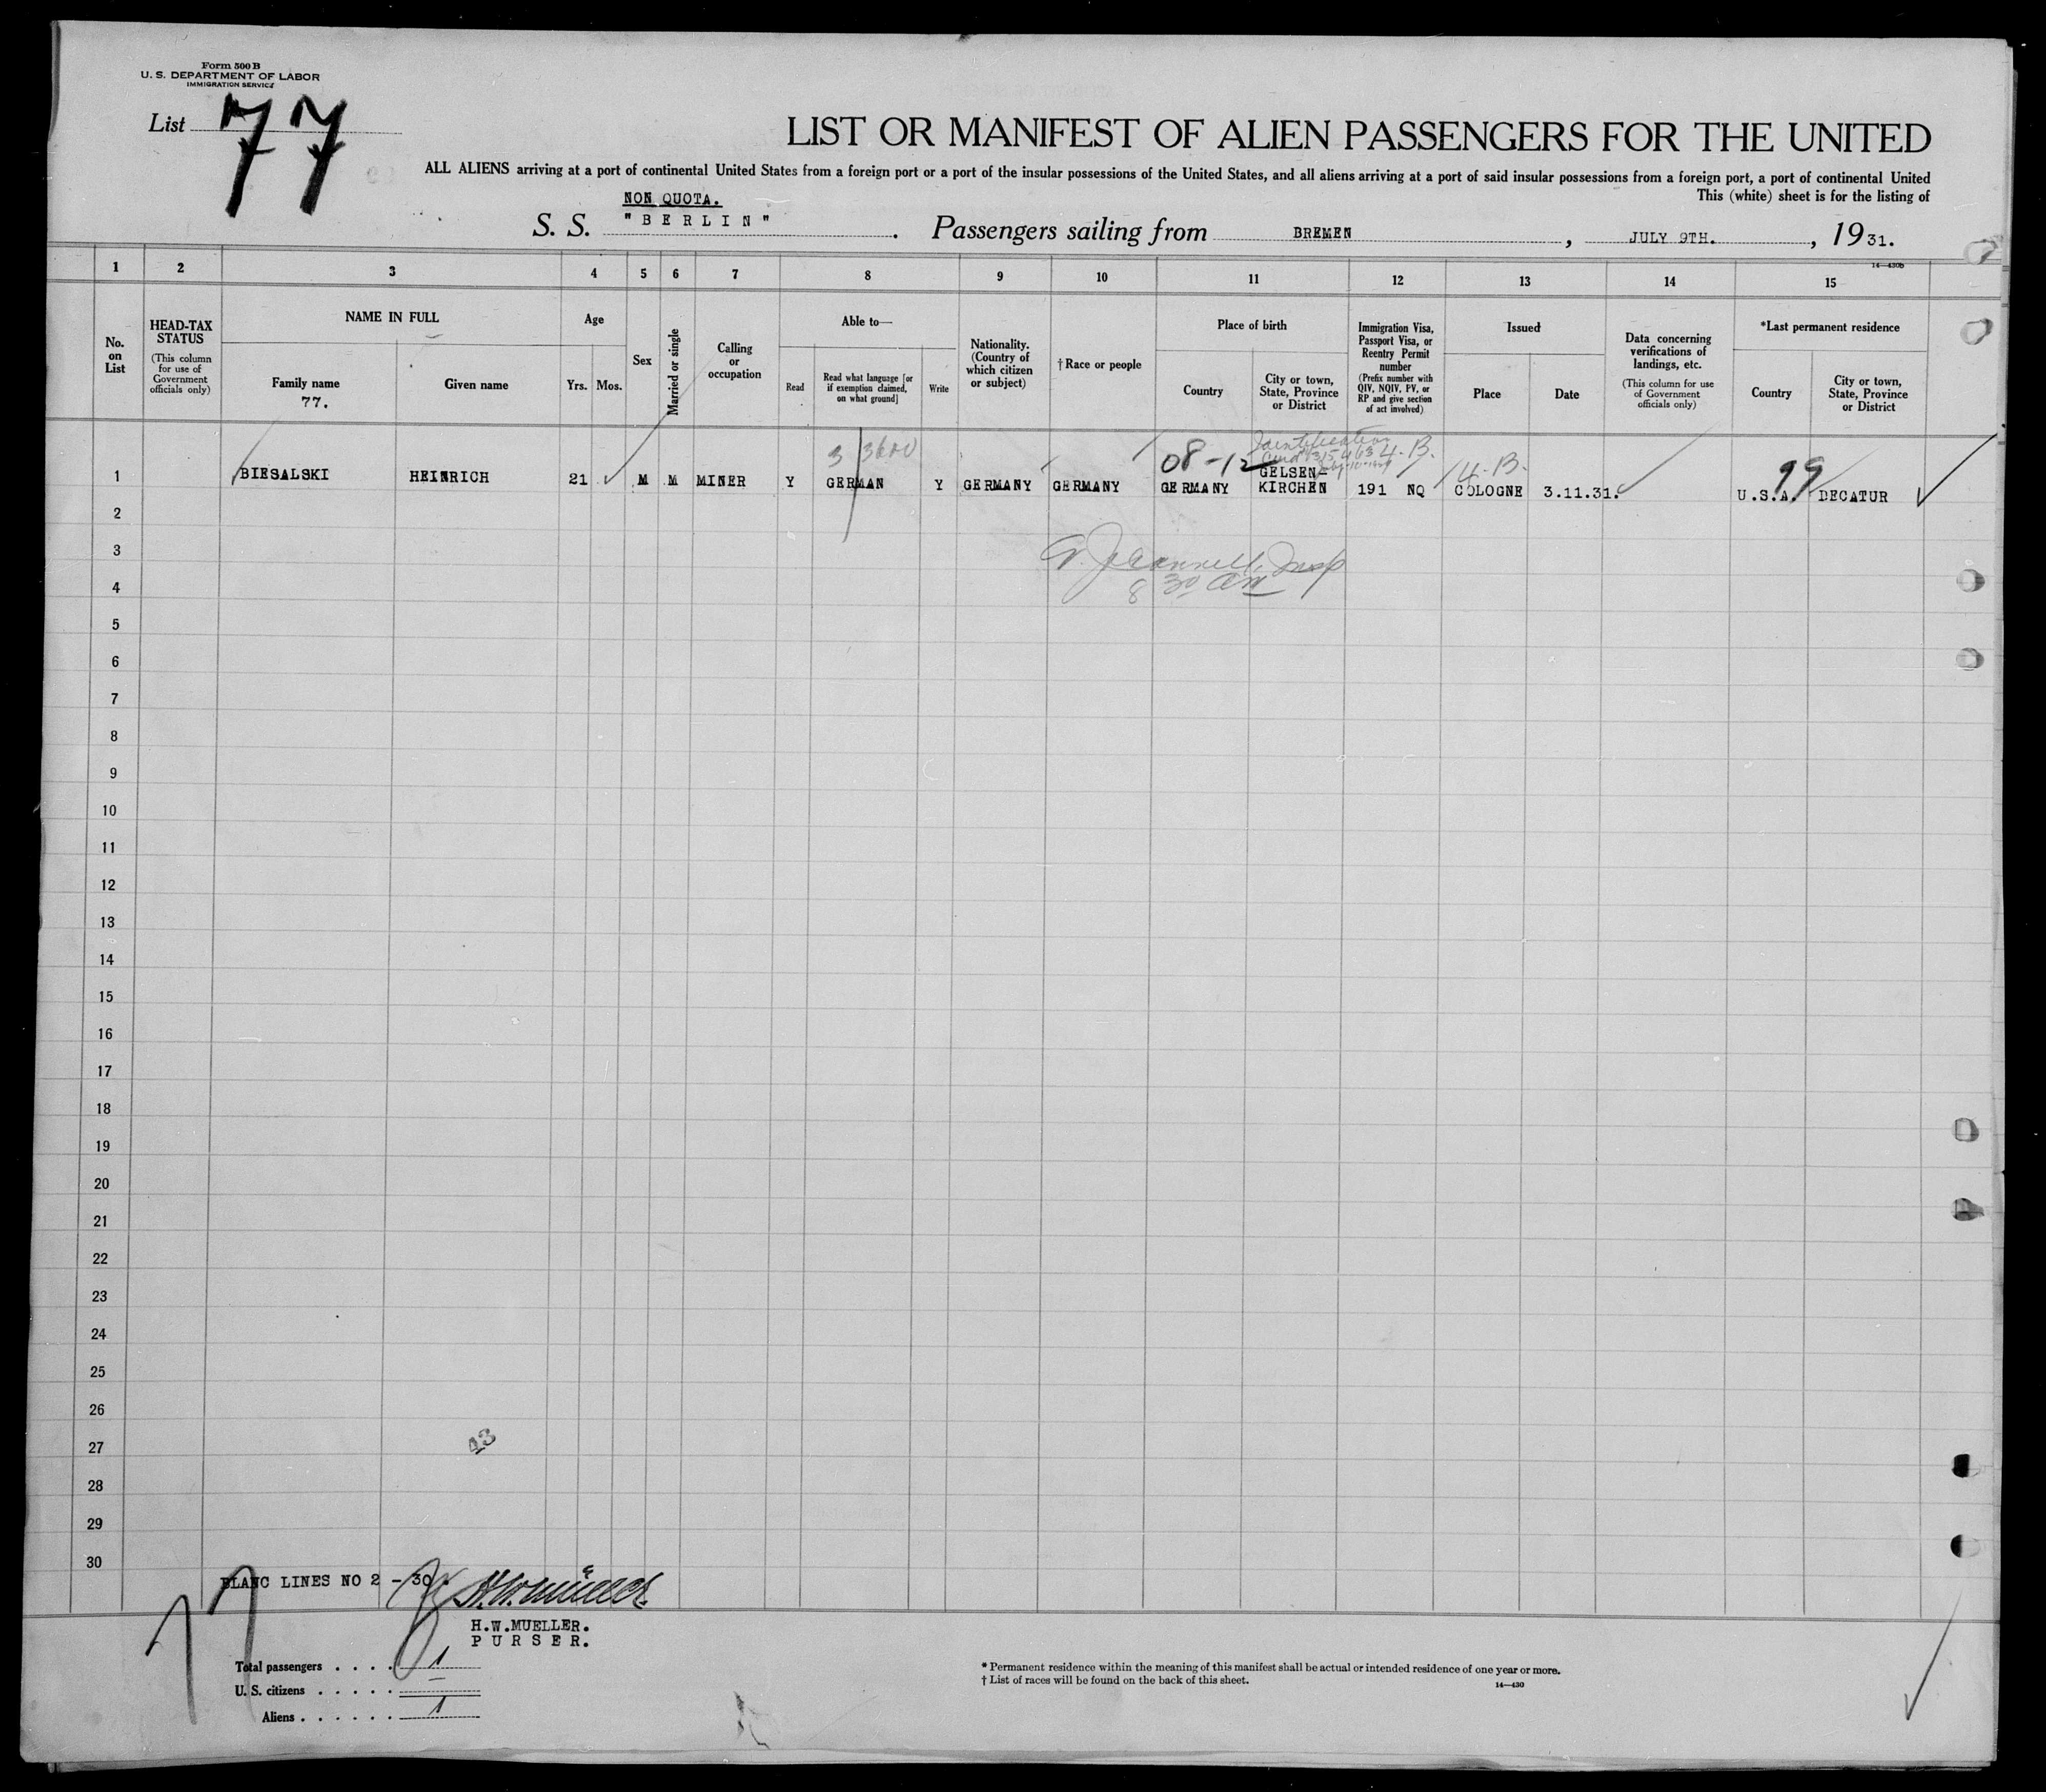 Form 500 B
U. S. DEPARTMENT OF LABOR
IMMIGRATION SERVICE
List 77
LIST OR MANIFEST OF ALIEN PASSENGERS FOR THE UNITED
ALL ALIENS arriving at a port of continental United States from a foreign port or a port of the insular possessions of the United States, and all aliens arriving at a port of said insular possessions from a foreign port, a port of continental United
This (white) sheet is for the listing of
NON QUOTA.
S. S. "BERLIN". Passengers sailing from BREMEN, JULY 9TH., 1931.
14—430b
1 2 3 4 5 6 7 8 9 10 11 12 13 14 15
No. on List
HEAD-TAX STATUS
(This column for use of Government officials only)
NAME IN FULL
Family name
77.
Given name
Age
Yrs. Mos.
Sex
Married or single
Calling or occupation
Able to—
Read
Read what language [or if exemption claimed, on what ground]
Write
Nationality. (Country of which citizen or subject)
†Race or people
Place of birth
Country
City or town, State, Province or District
Immigration Visa, Passport Visa, or Reentry Permit number
(Prefix number with QIV, NQIV, PV, or RP and give section of act involved)
Issued
Place
Date
Data concerning verifications of landings, etc.
(This column for use of Government officials only)
*Last permanent residence
Country
City or town, State, Province or District
3 3600
08-12
Identification
4-B.
4-B.
99
1 BIESALSKI HEINRICH 21 M M MINER Y GERMAN Y GERMANY GERMANY GERMANY GELSEN-KIRCHEN 191 NQ COLOGNE 3.11.31. U.S.A. DECATUR
2
3
Insp
4
8 30 AM
5
6
7
8
9
10
11
12
13
14
15
16
17
18
19
20
21
22
23
24
25
26
27
43
28
29
30
BLANC LINES NO 2 - 30.
H.W.Müller
H.W.MUELLER.
PURSER.
77
Total passengers . . . . 1
U. S. citizens . . . . . —
Aliens . . . . . . 1
* Permanent residence within the meaning of this manifest shall be actual or intended residence of one year or more.
† List of races will be found on the back of this sheet.
14—430